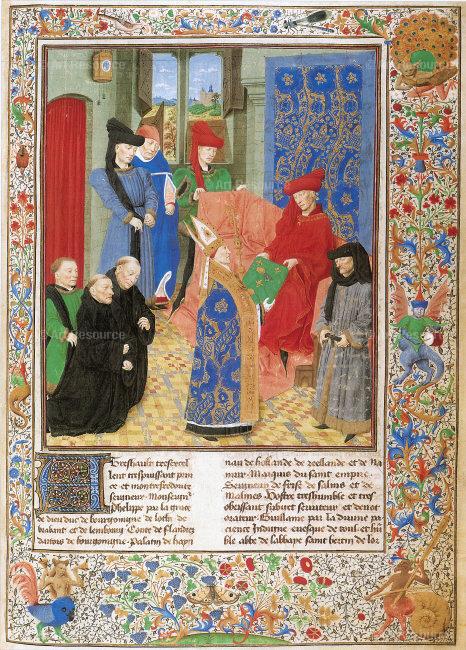 A Treshault tresexcel
lent trespuissant prin
ce et montresredoubte
seigneur Monseignr
Phelippe par la grace
de dieu duc de bourgoingne de loth. de
brabant et de lembourg Conte de flandres
dartois de bourgoingne. Palatin de hayn
nau de hollande de zeellande et de na
mur. Marquis du saint empire
Seigneur de frise de salins et de
Malines Vostre treshumble et tres
obeissant subget serviteur et devot
orateur Guillame par la divine pa
cience Indigne evesque de toul et hũ
ble abbe de labbaye saint bertin de loz
Art Resource